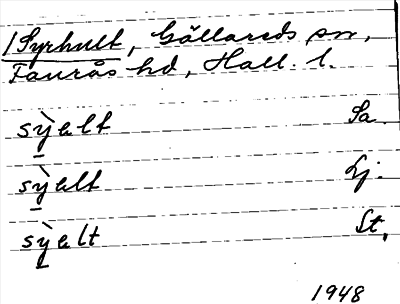 /Syrhult, Gällareds sn,
Faurås hd, Hall. l.
sỳelt Sa.
sỳelt Lj.
sỳelt St.
1948